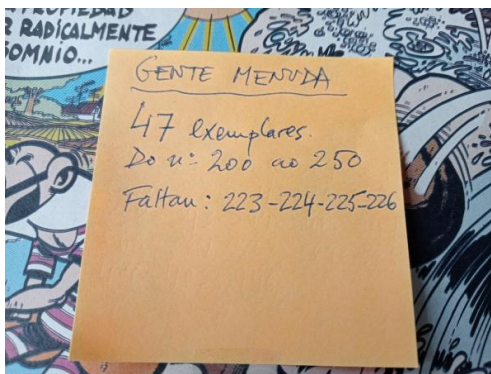 PROPIEDAD
RADICALMENTE
SOMNIO...
GENTE MENUDA
47 exemplares.
Do nº 200 ao 250
Faltan: 223-224-225-226